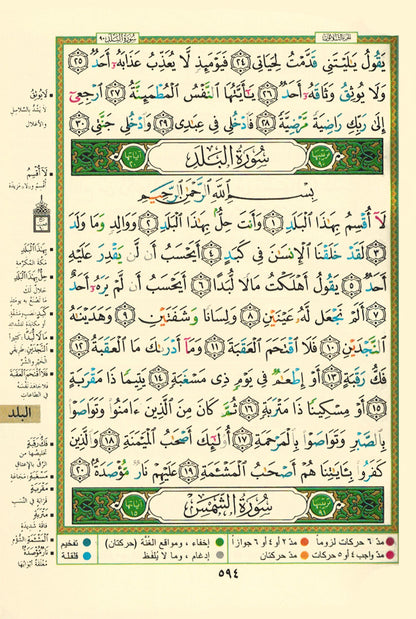 سُورَةُ البَلَد ٩٠
يَقُولُ يَٰلَيْتَنِى قَدَّمْتُ لِحَيَاتِى ٢٤ فَيَوْمَئِذٍ لَّا يُعَذِّبُ عَذَابَهُۥٓ أَحَدٌ ٢٥
وَلَا يُوثِقُ وَثَاقَهُۥٓ أَحَدٌ ٢٦ يَٰٓأَيَّتُهَا ٱلنَّفْسُ ٱلْمُطْمَئِنَّةُ ٢٧ ٱرْجِعِىٓ
إِلَىٰ رَبِّكِ رَاضِيَةً مَّرْضِيَّةً ٢٨ فَٱدْخُلِى فِى عِبَٰدِى ٢٩ وَٱدْخُلِى جَنَّتِى ٣٠
سُورَةُ البَلَدِ
بِسْمِ ٱللَّهِ ٱلرَّحْمَٰنِ ٱلرَّحِيمِ
لَآ أُقْسِمُ بِهَٰذَا ٱلْبَلَدِ ١ وَأَنتَ حِلٌّۢ بِهَٰذَا ٱلْبَلَدِ ٢ وَوَالِدٍ وَمَا وَلَدَ
٣ لَقَدْ خَلَقْنَا ٱلْإِنسَٰنَ فِى كَبَدٍ ٤ أَيَحْسَبُ أَن لَّن يَقْدِرَ عَلَيْهِ
أَحَدٌ ٥ يَقُولُ أَهْلَكْتُ مَالًا لُّبَدًا ٦ أَيَحْسَبُ أَن لَّمْ يَرَهُۥٓ أَحَدٌ
٧ أَلَمْ نَجْعَل لَّهُۥ عَيْنَيْنِ ٨ وَلِسَانًا وَشَفَتَيْنِ ٩ وَهَدَيْنَٰهُ
ٱلنَّجْدَيْنِ ١٠ فَلَا ٱقْتَحَمَ ٱلْعَقَبَةَ ١١ وَمَآ أَدْرَىٰكَ مَا ٱلْعَقَبَةُ ١٢
فَكُّ رَقَبَةٍ ١٣ أَوْ إِطْعَٰمٌ فِى يَوْمٍ ذِى مَسْغَبَةٍ ١٤ يَتِيمًا ذَا مَقْرَبَةٍ
١٥ أَوْ مِسْكِينًا ذَا مَتْرَبَةٍ ١٦ ثُمَّ كَانَ مِنَ ٱلَّذِينَ ءَامَنُوا۟ وَتَوَاصَوْا۟
بِٱلصَّبْرِ وَتَوَاصَوْا۟ بِٱلْمَرْحَمَةِ ١٧ أُو۟لَٰٓئِكَ أَصْحَٰبُ ٱلْمَيْمَنَةِ ١٨ وَٱلَّذِينَ
كَفَرُوا۟ بِـَٔايَٰتِنَا هُمْ أَصْحَٰبُ ٱلْمَشْـَٔمَةِ ١٩ عَلَيْهِمْ نَارٌ مُّؤْصَدَةٌۢ ٢٠
سُورَةُ الشَّمْسِ
لَا يُوثِقُ
لا يَشُدُّ بالسلاسل
والأغلال
لَآ أُقْسِمُ
أُقسم و «لا» مزيدة
بِهَٰذَا ٱلْبَلَدِ
مكة المكرّمة
البلد
فَكُّ رَقَبَةٍ
تخليصها من
الرّقّ بالإعتاق
مَسْغَبَةٍ: مجاعة
مَقْرَبَةٍ
قرابة في النسب
مَتْرَبَةٍ
فاقة شديدة
ٱلْمَشْـَٔمَةِ: الشؤم
نَارٌ مُّؤْصَدَةٌ
مغلقة أبوابها
مدّ ٦ حركات لزوماً مدّ ٢ أو ٤ أو ٦ جوازاً إخفاء، ومواقع الغُنَّة (حركتان) تفخيم
مدّ واجب ٤ أو ٥ حركات مدّ حركتان إدغام، وما لا يُلفَظ قلقلة
٥٩٤